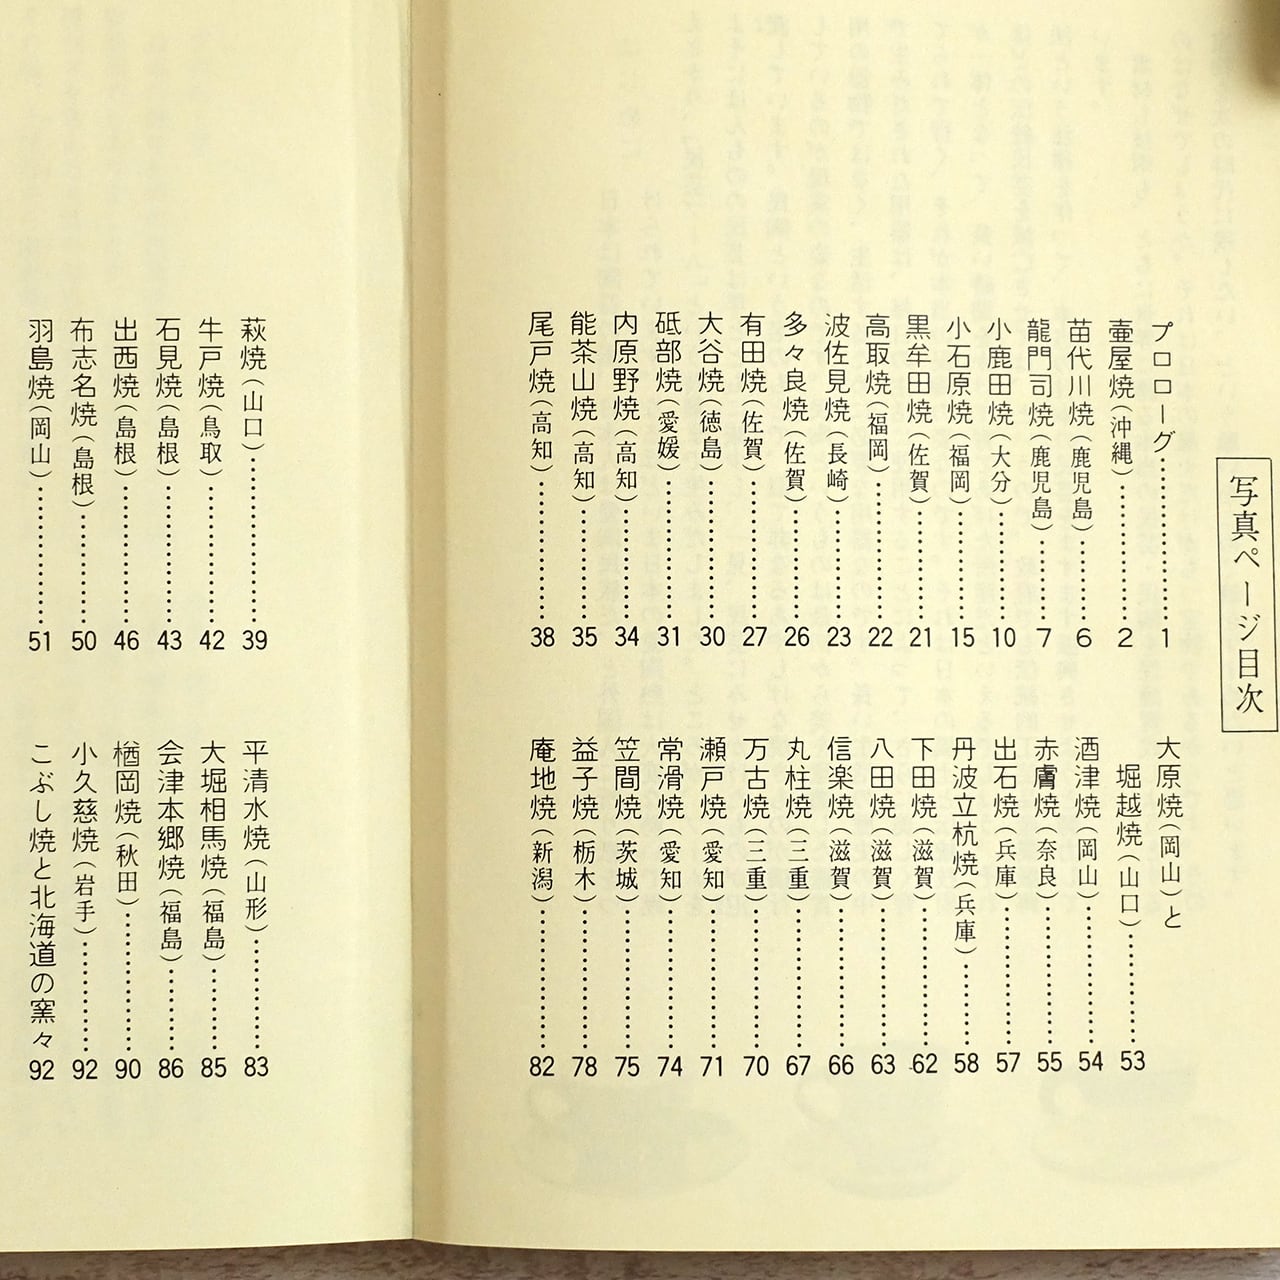 写真ページ目次
プロローグ……………………1
壷屋焼(沖縄)………………2
苗代川焼(鹿児島)…………6
龍門司焼(鹿児島)…………7
小鹿田焼(大分)……………10
小石原焼(福岡)……………15
黒牟田焼(佐賀)……………21
高取焼(福岡)………………22
波佐見焼(長崎)……………23
多々良焼(佐賀)……………26
有田焼(佐賀)………………27
大谷焼(徳島)………………30
砥部焼(愛媛)………………31
内原野焼(高知)……………34
能茶山焼(高知)……………35
尾戸焼(高知)………………38
萩焼(山口)…………………39
牛戸焼(鳥取)………………42
石見焼(島根)………………43
出西焼(島根)………………46
布志名焼(島根)……………50
羽島焼(岡山)………………51
大原焼(岡山)と
堀越焼(山口)………………53
酒津焼(岡山)………………54
赤膚焼(奈良)………………55
出石焼(兵庫)………………57
丹波立杭焼(兵庫)…………58
下田焼(滋賀)………………62
八田焼(滋賀)………………63
信楽焼(滋賀)………………66
丸柱焼(三重)………………67
万古焼(三重)………………70
瀬戸焼(愛知)………………71
常滑焼(愛知)………………74
笠間焼(茨城)………………75
益子焼(栃木)………………78
庵地焼(新潟)………………82
平清水焼(山形)……………83
大堀相馬焼(福島)…………85
会津本郷焼(福島)…………86
楢岡焼(秋田)………………90
小久慈焼(岩手)……………92
こぶし焼と北海道の窯々 92